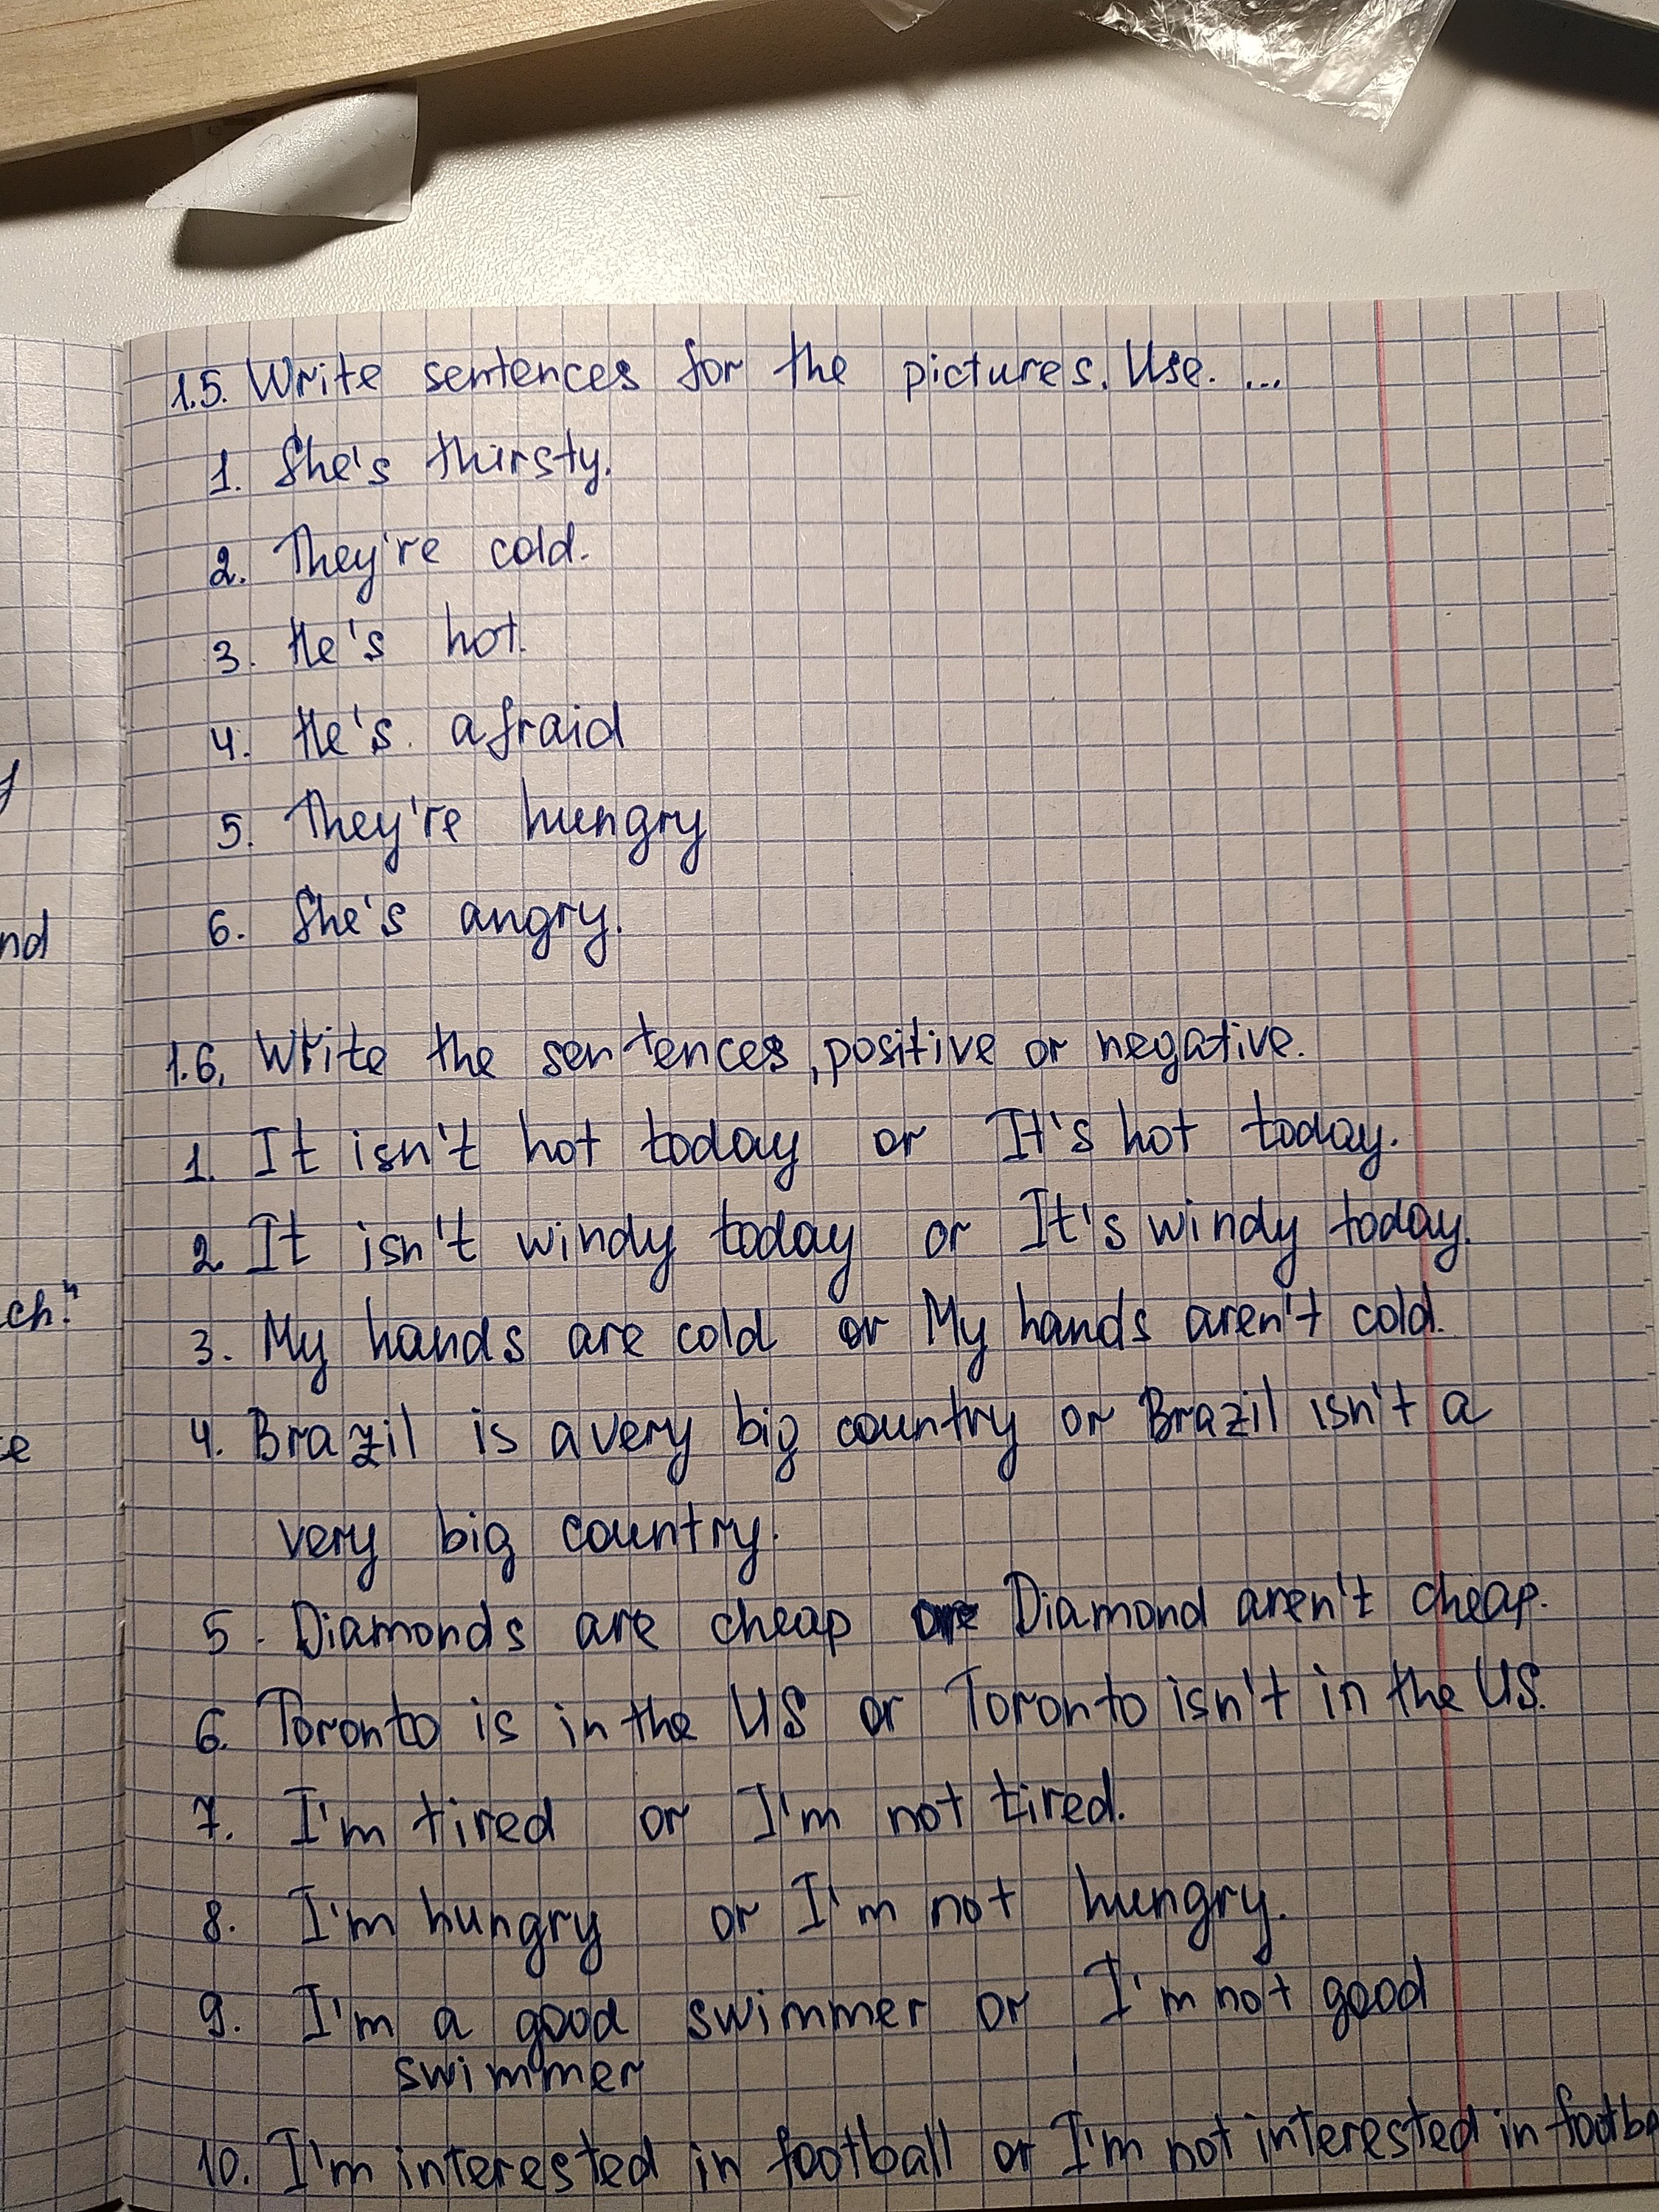 y
nd
ch."
e
1.5. Write sentences for the pictures. Use. ...
1. She's thirsty.
2. They're cold.
3. He's hot.
4. He's afraid
5. They're hungry
6. She's angry.
1.6. Write the sentences, positive or negative.
1. It isn't hot today or It's hot today.
2. It isn't windy today or It's windy today.
3. My hands are cold or My hands aren't cold.
4. Brazil is a very big country or Brazil isn't a
very big country.
5. Diamonds are cheap ore Diamond aren't cheap.
6. Toronto is in the US or Toronto isn't in the US.
7. I'm tired or I'm not tired.
8. I'm hungry or I'm not hungry.
9. I'm a good swimmer or I'm not good
swimmer
10. I'm interested in football or I'm not interested in footba